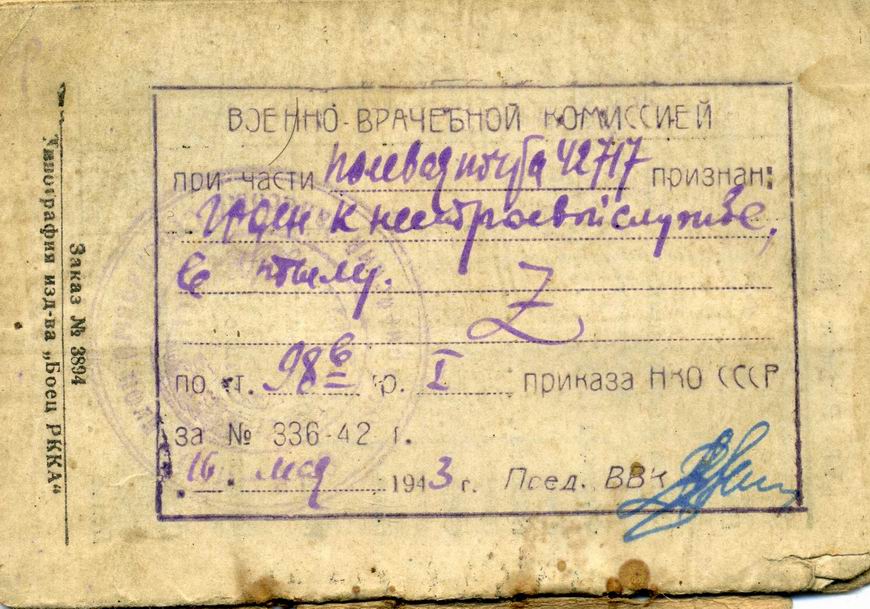 ВОЕННО-ВРАЧЕБНОЙ КОМИССИЕЙ
при части полевая почта 42717 признан:
годен к нестроевой службе,
в тылу.
Z
по ст. 98 в гр. I приказа НКО СССР
за № 336-42 г.
16. мая 1943 г. Пред. ВВК
Заказ № 3894
Типография изд-ва „Боец РККА“